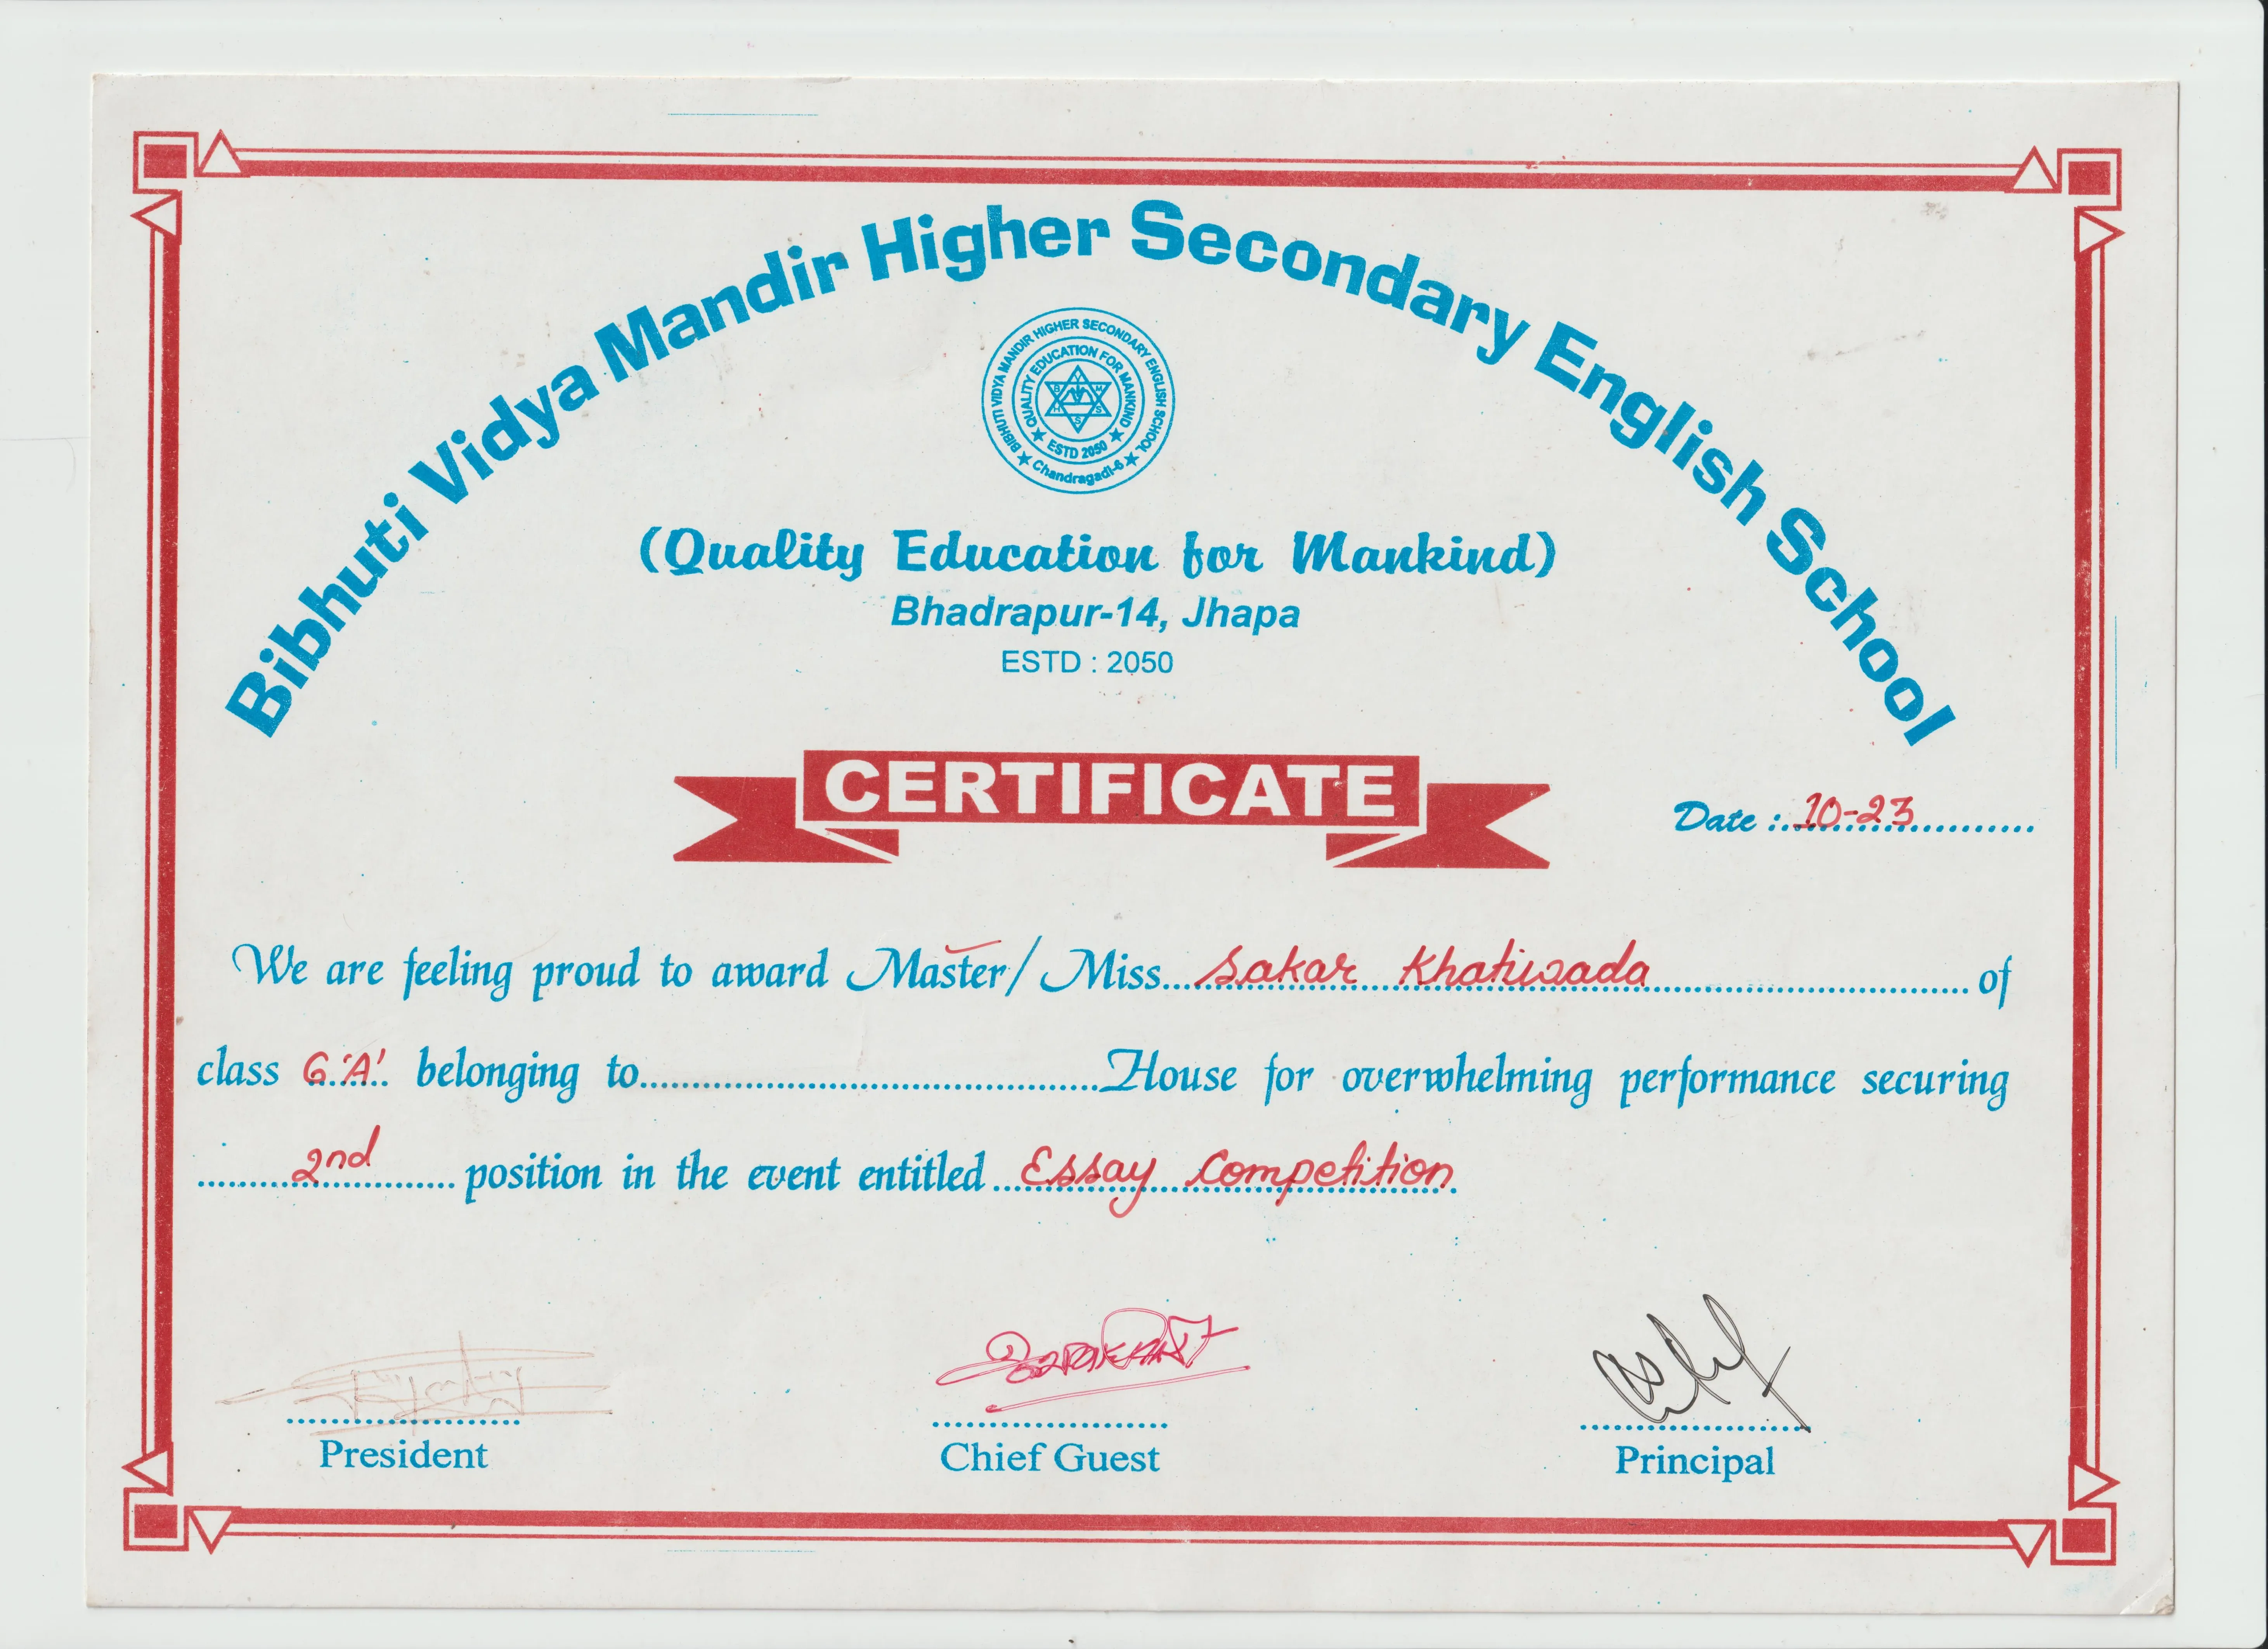 Bibhuti Vidya Mandir Higher Secondary English School
BIBHUTI VIDYA MANDIR HIGHER SECONDARY ENGLISH SCHOOL
QUALITY EDUCATION FOR MANKIND
ESTD 2050
Chandragadi-6
(Quality Education for Mankind)
Bhadrapur-14, Jhapa
ESTD : 2050
CERTIFICATE
Date : 10-23
We are feeling proud to award Master/ Miss Sakar Khatiwada of
class 6 'A' belonging to House for overwhelming performance securing
2nd position in the event entitled Essay Competition.
President Chief Guest Principal